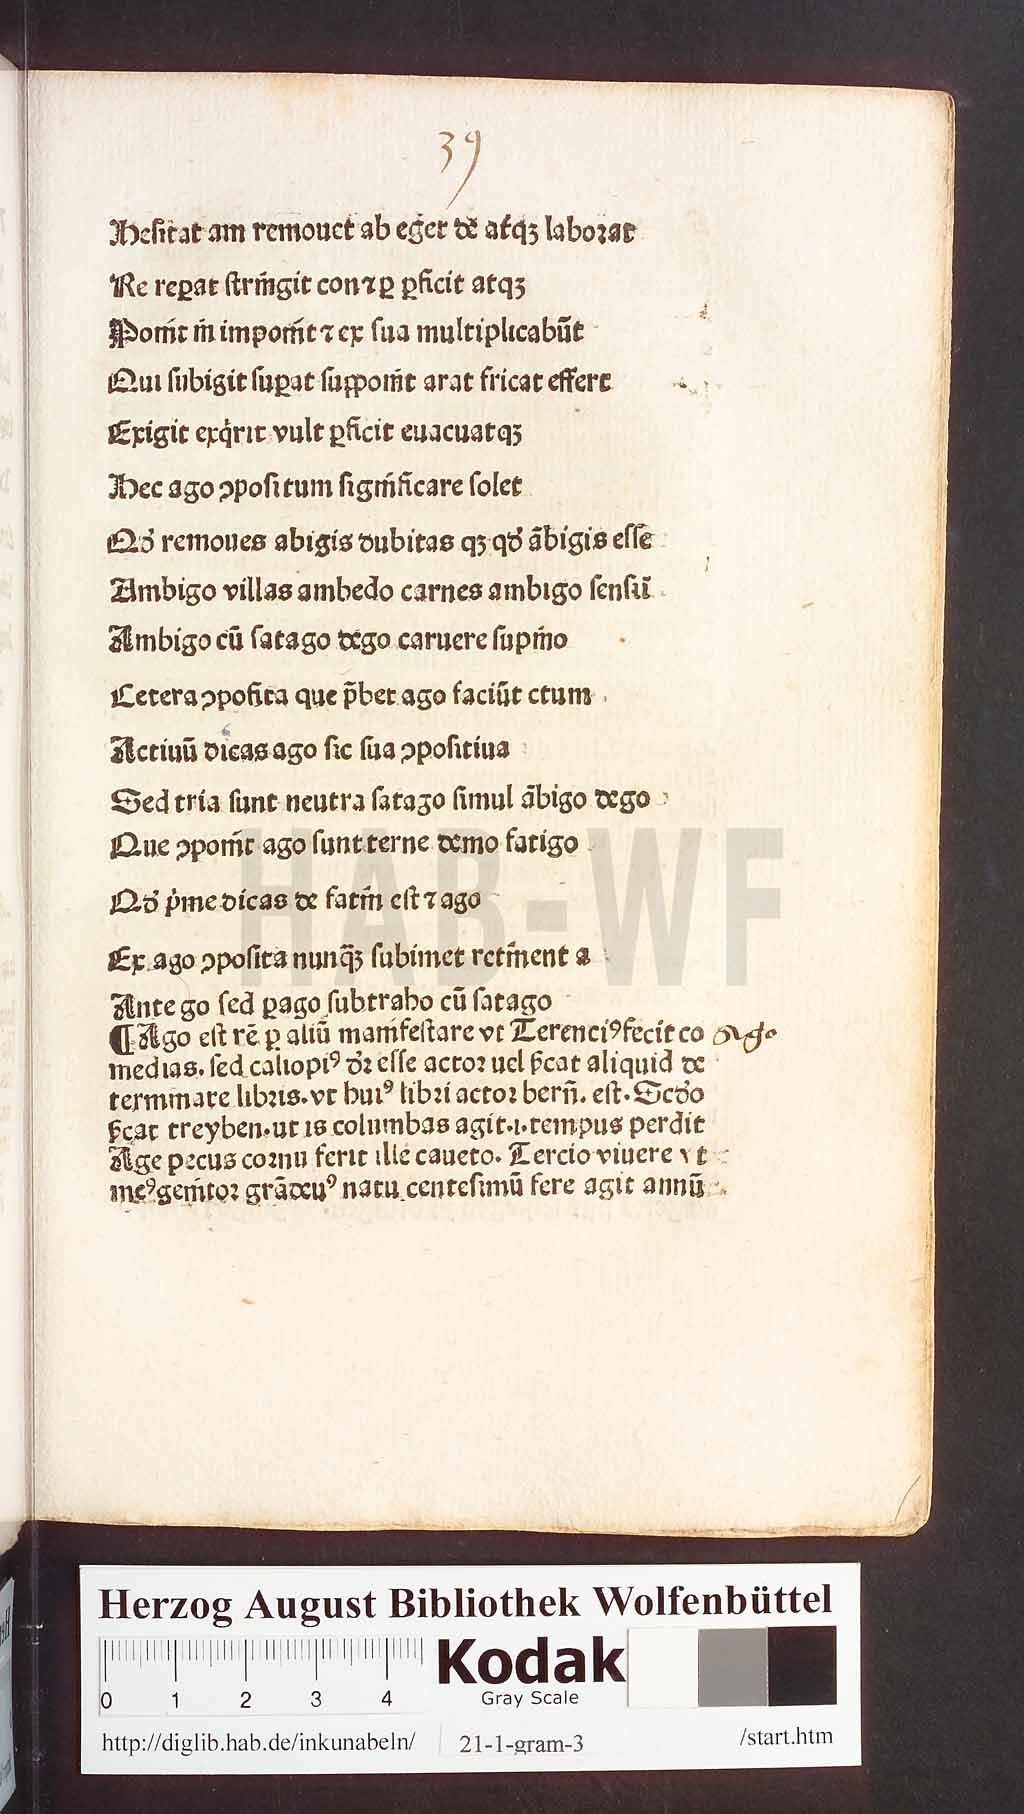 39
Hesitat am remouet ab eget dē atqꝫ laborat
Re reꝑat strīgit con ⁊ ꝑ ꝑficit atqꝫ
Ponit in imponit ⁊ ex sua multiplicabūt
Qui subigit suꝑat supponit arat fricat effert
Exigit exqͥrit vult ꝑficit euacuatqꝫ
Hec ago ↄpositum significare solet
Qd̓ remoues abigis dubitas qꝫ qd̓ ābigis esse
Ambigo villas ambedo carnes ambigo sensū
Ambigo cū satago dego caruere supīo
Cetera ↄposita que p̄bet ago faciūt ctum
Actiuū dicas ago sic sua ↄpositiua
Sed tria sunt neutra satago simul ābigo dego
Que ↄponit ago sunt terne demo fatigo
Qd̓ pͥme dicas de fatim est ⁊ ago
Ex ago ↄposita nunqꝫ̄ subimet retinent a
Ante go sed ꝑago subtraho cū satago
¶ Ago est rē ꝑ aliū manifestare vt Terenciꝰ fecit co
Ago
medias. sed caliopiꝰ dr̄ esse actor uel p̄cat aliquid de
terminare libris. vt huiꝰ libri actor bern̄. est. Scd̓o
p̄cat treyben. ut is columbas agit .i. tempus perdit
Age pecus cornu ferit ille caueto. Tercio viuere vt
meꝰ genitor grādeuꝰ natu centesimū fere agit annū
HAB-WF
Herzog August Bibliothek Wolfenbüttel
0 1 2 3 4
Kodak
Gray Scale
http://diglib.hab.de/inkunabeln/ 21-1-gram-3 /start.htm